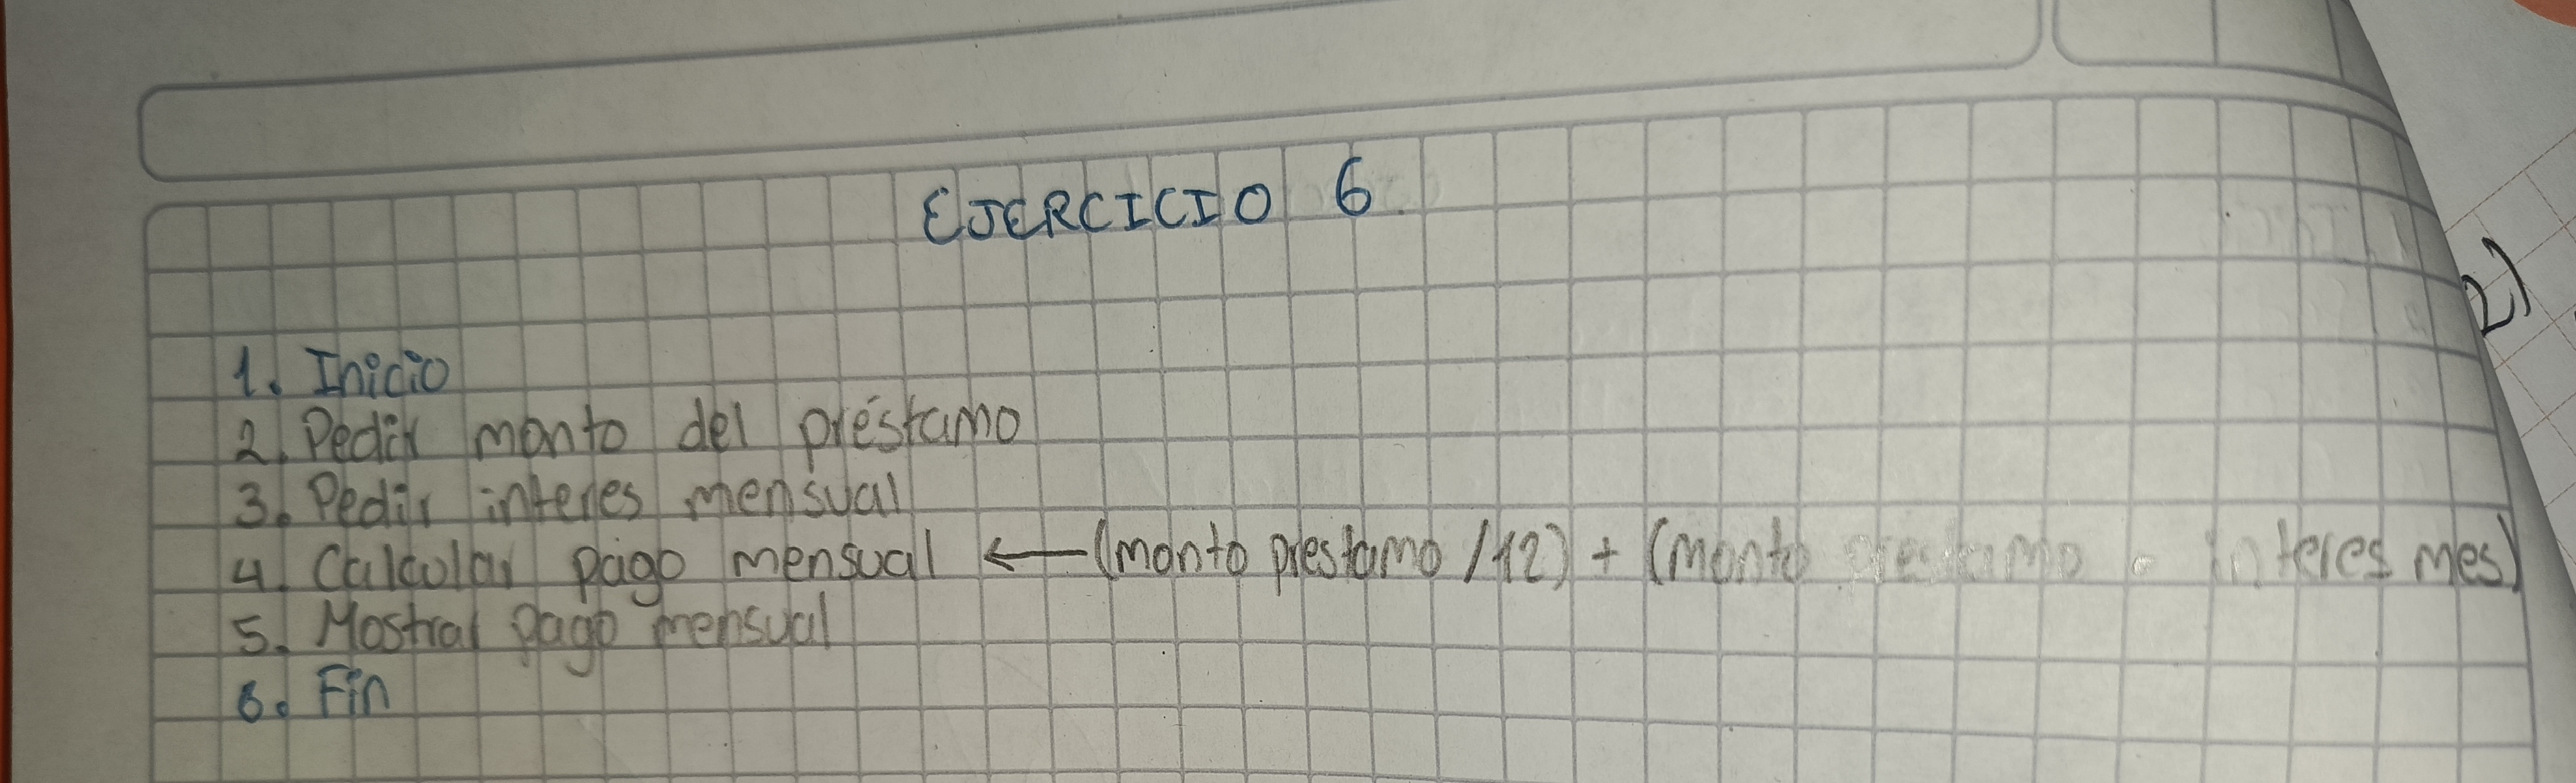 EJERCICIO 6
1. Inicio
2. Pedir monto del préstamo
3. Pedir interes mensual
4. Calcular pago mensual ← (monto prestamo / 12) + (monto prestamo · interes mes)
5. Mostrar pago mensual
6. Fin
2)